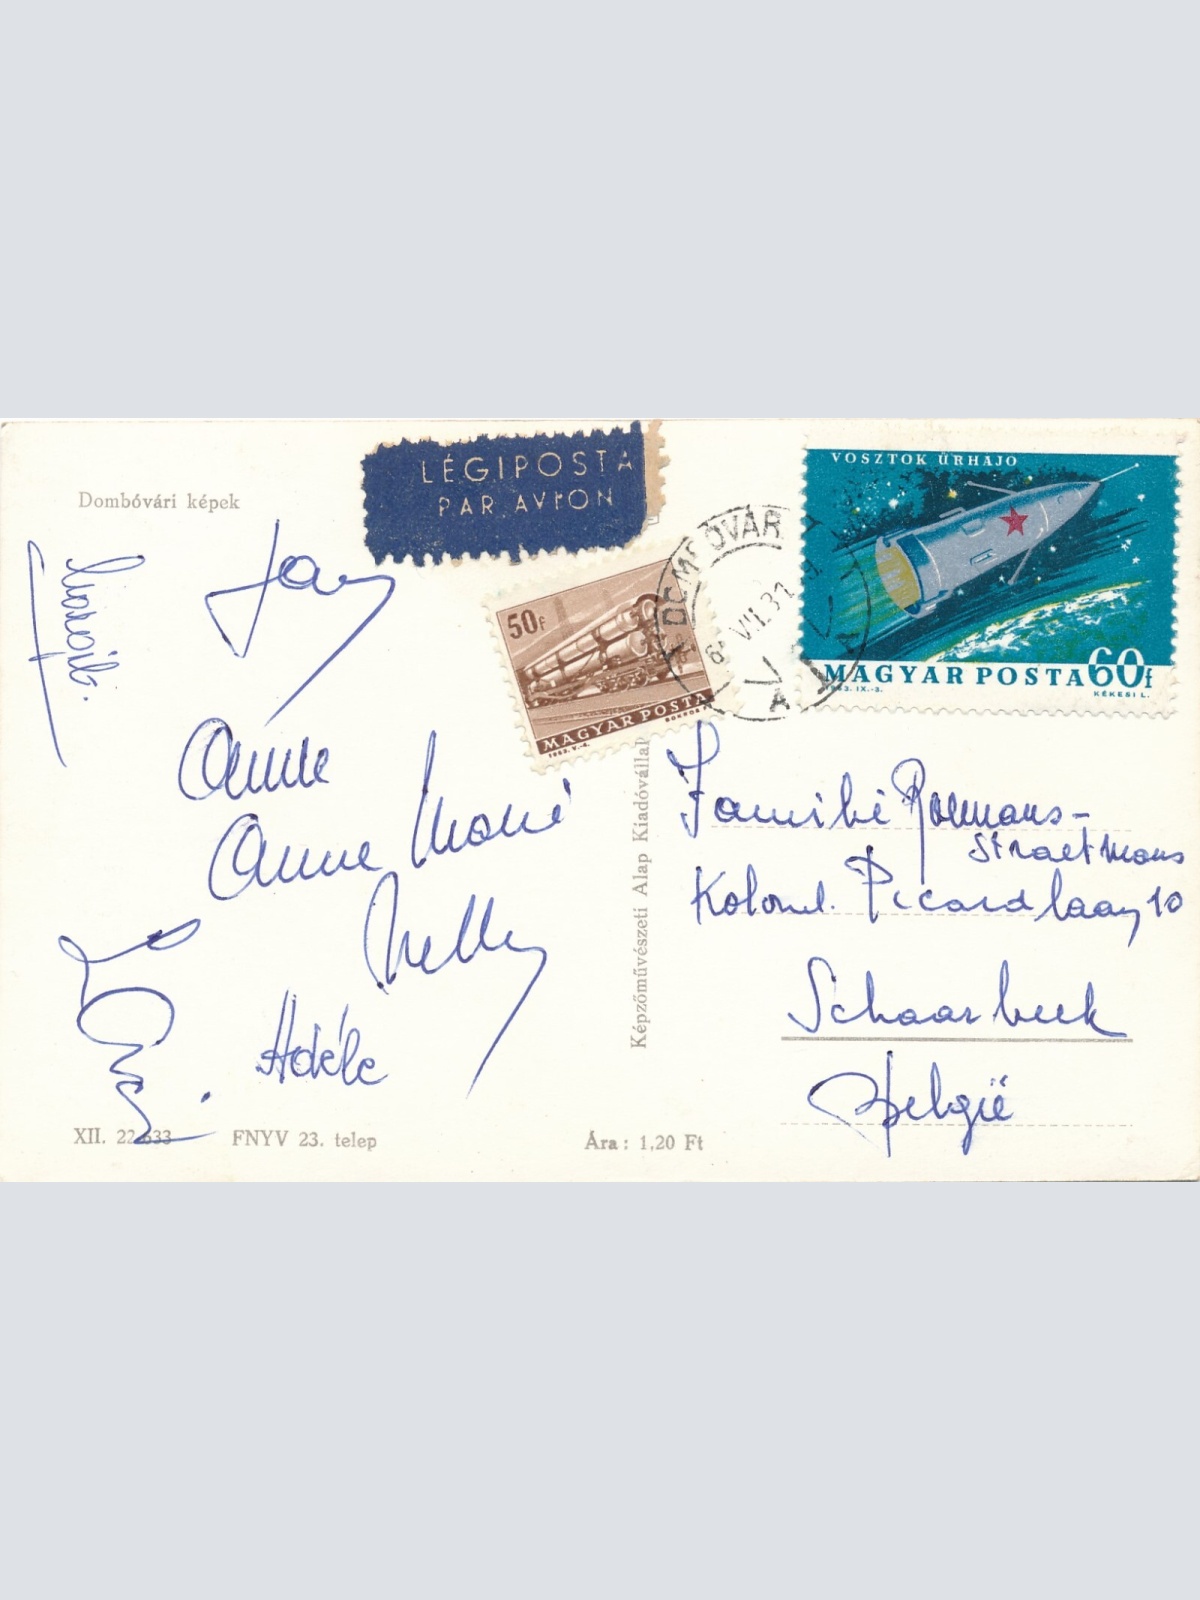 Dombóvári képek
LÉGIPOSTA
PAR AVION
50f
MAGYAR POSTA
1963.V.-4.
VOSZTOK ŰRHAJÓ
MAGYAR POSTA 60f
1963. IX.-3.
KÉKESI L.
DOMBÓVÁR
VII.31
Margit.
Anne
Anne Marie
Nelly
Adéle
Képzőművészeti Alap Kiadóvállal
Familie
Straetmans
Kolonel. Picardlaan 10
Schaarbeek
België
XII. 22.533
FNYV 23. telep
Ára: 1,20 Ft